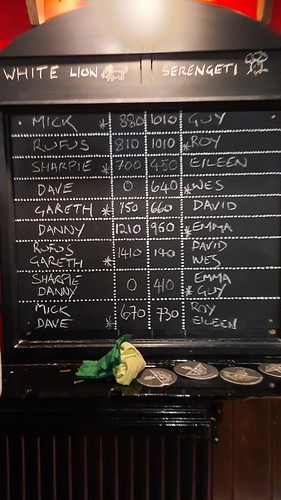 WHITE LION SERENGETI
MICK * 880 1010 GUY
RUFUS 810 1010 * ROY
SHARPIE * 700 450 EILEEN
DAVE 0 640 * WES
GARETH * 150 660 DAVID
DANNY 1210 960 * EMMA
RUFUS 1410 140 DAVID
GARETH * WES
SHARPIE 0 410 EMMA
DANNY * GUY
MICK 670 730 ROY
DAVE * EILEEN